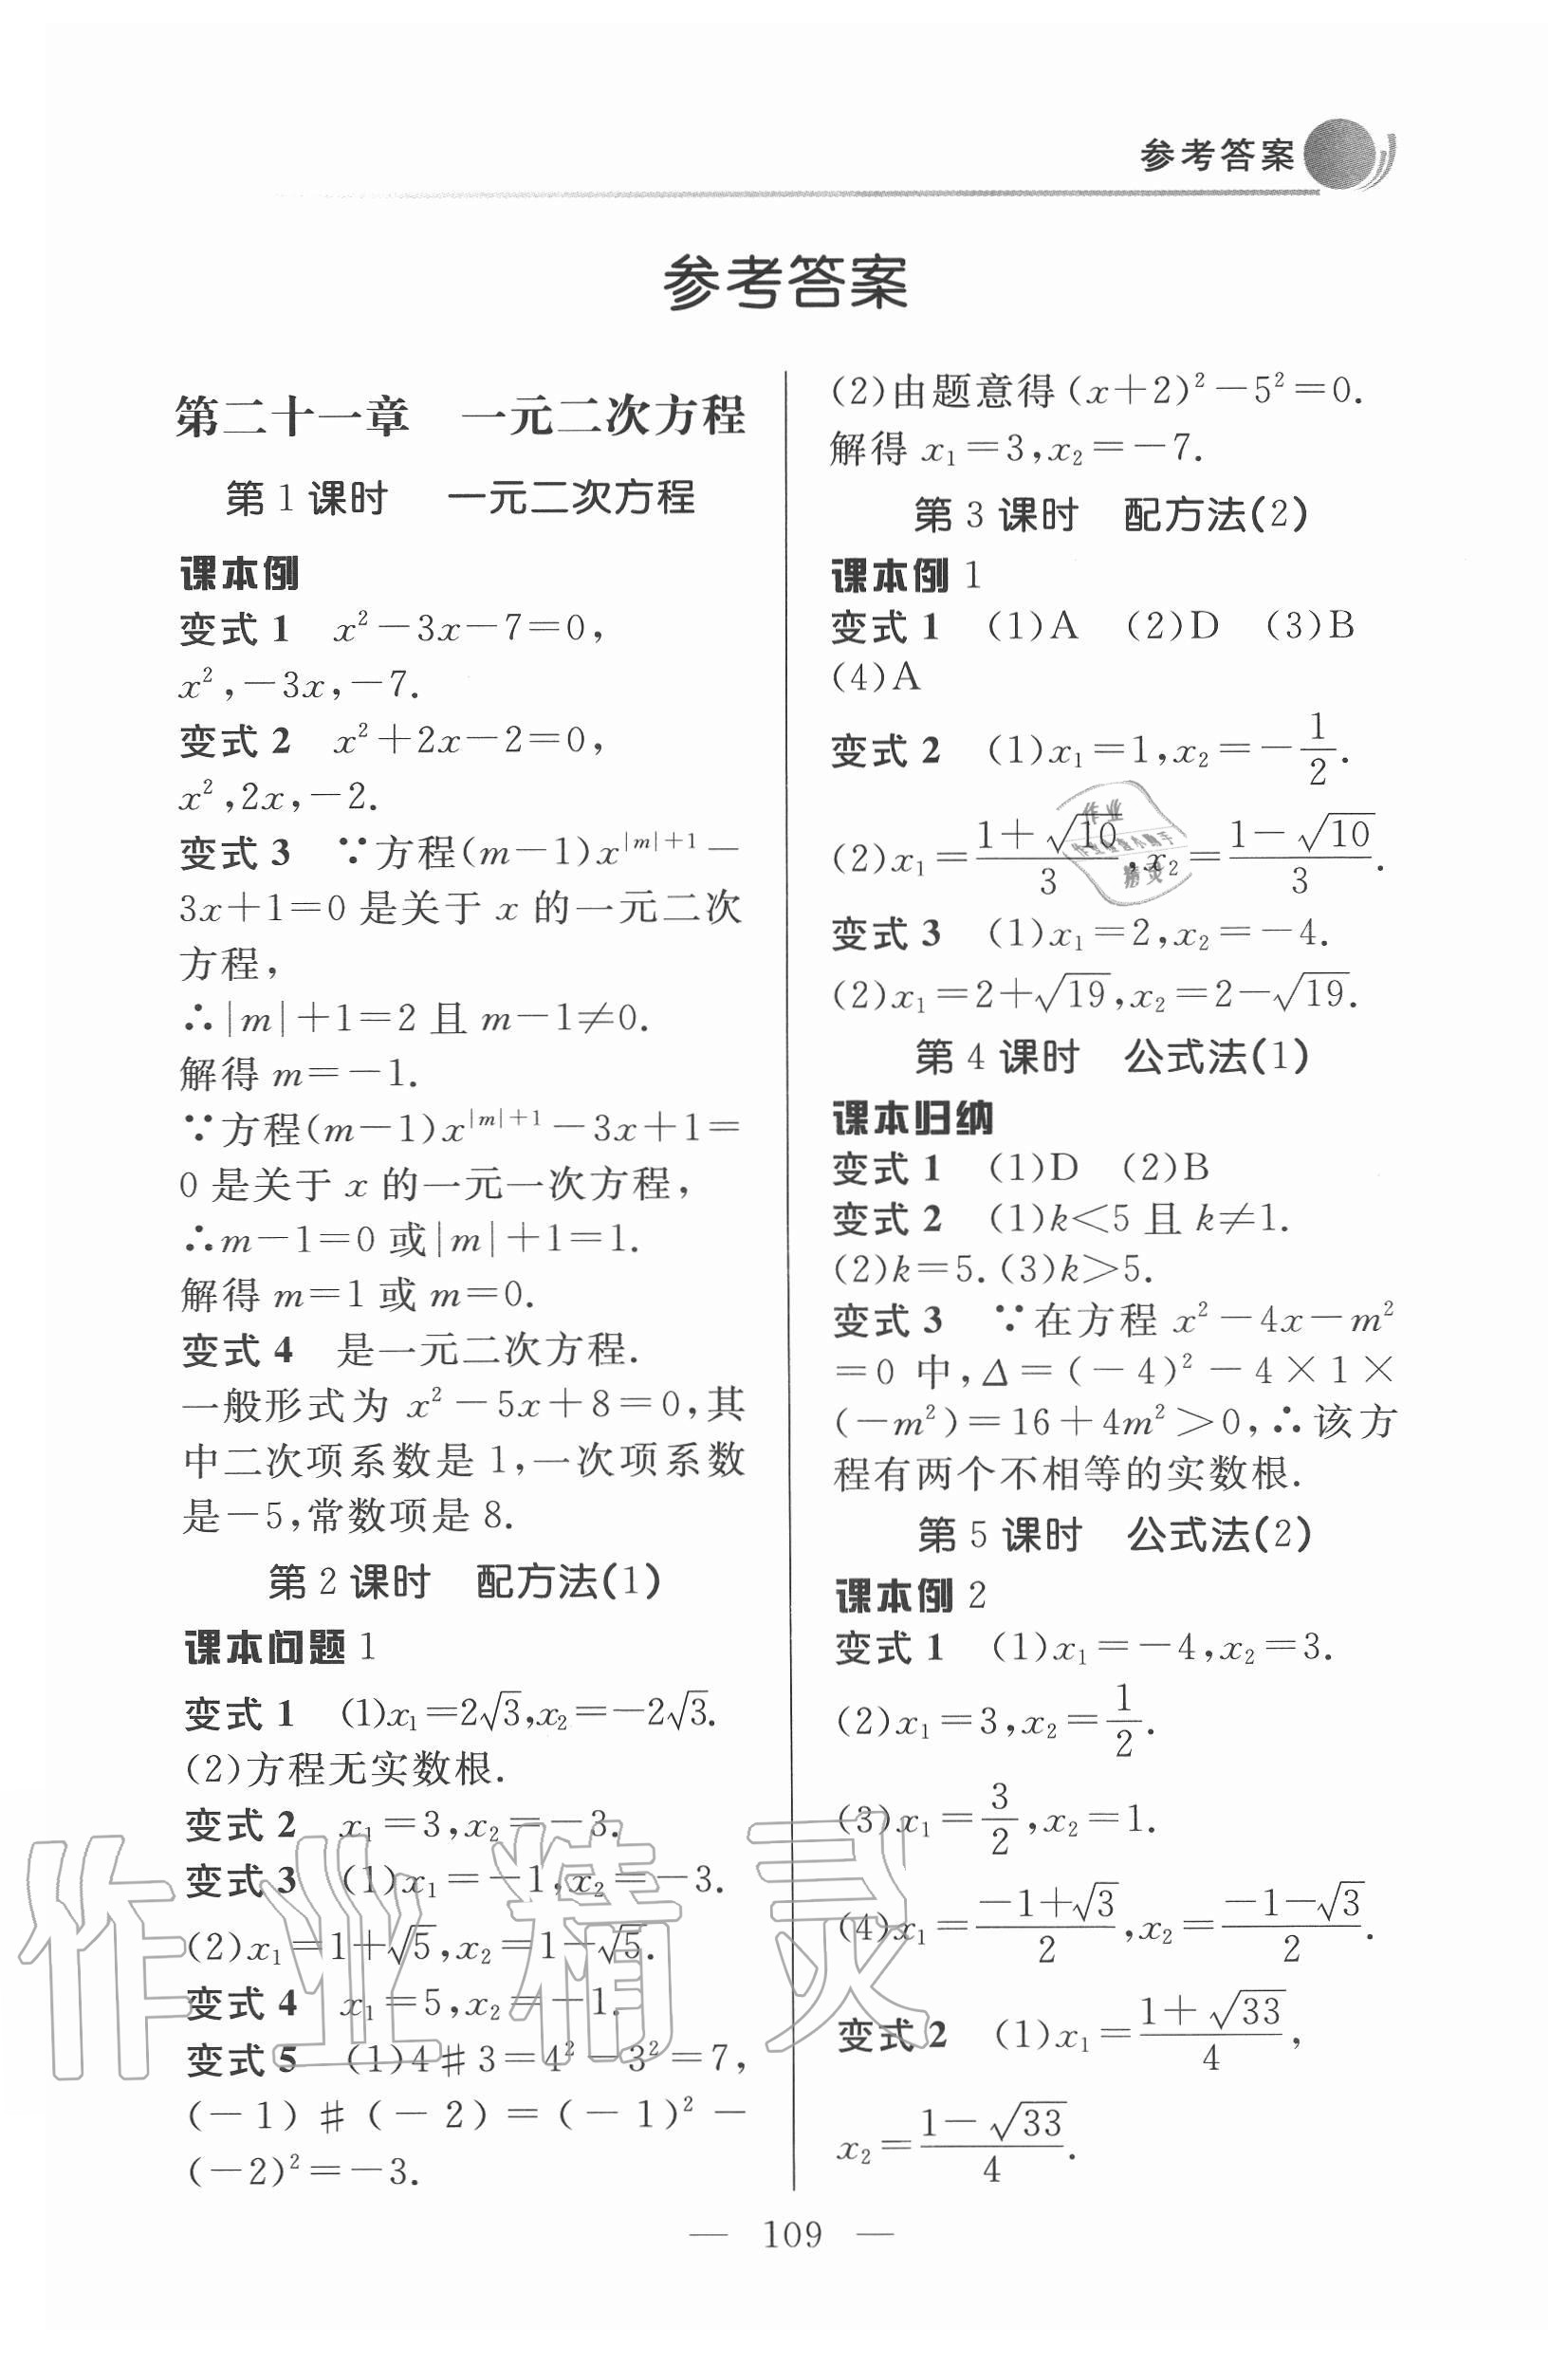 参考答案
参考答案
第二十一章 一元二次方程
第1课时 一元二次方程
课本例
变式1 x²-3x-7=0,
x²,-3x,-7.
变式2 x²+2x-2=0,
x²,2x,-2.
变式3 ∵方程(m-1)x^{|m|+1}-
3x+1=0是关于x的一元二次
方程,
∴|m|+1=2且m-1≠0.
解得m=-1.
∵方程(m-1)x^{|m|+1}-3x+1=
0是关于x的一元一次方程,
∴m-1=0或|m|+1=1.
解得m=1或m=0.
变式4 是一元二次方程.
一般形式为x²-5x+8=0,其
中二次项系数是1,一次项系数
是-5,常数项是8.
第2课时 配方法(1)
课本问题1
变式1 (1)x₁=2√3,x₂=-2√3.
(2)方程无实数根.
变式2 x₁=3,x₂=-3.
变式3 (1)x₁=-1,x₂=-3.
(2)x₁=1+√5,x₂=1-√5.
变式4 x₁=5,x₂=-1.
变式5 (1)4♯3=4²-3²=7,
(-1)♯(-2)=(-1)²-
(-2)²=-3.
(2)由题意得(x+2)²-5²=0.
解得x₁=3,x₂=-7.
第3课时 配方法(2)
课本例1
变式1 (1)A (2)D (3)B
(4)A
变式2 (1)x₁=1,x₂=-1/2.
(2)x₁=(1+√10)/3,x₂=(1-√10)/3.
变式3 (1)x₁=2,x₂=-4.
(2)x₁=2+√19,x₂=2-√19.
第4课时 公式法(1)
课本归纳
变式1 (1)D (2)B
变式2 (1)k<5且k≠1.
(2)k=5.(3)k>5.
变式3 ∵在方程x²-4x-m²
=0中,Δ=(-4)²-4×1×
(-m²)=16+4m²>0,∴该方
程有两个不相等的实数根.
第5课时 公式法(2)
课本例2
变式1 (1)x₁=-4,x₂=3.
(2)x₁=3,x₂=1/2.
(3)x₁=3/2,x₂=1.
(4)x₁=(-1+√3)/2,x₂=(-1-√3)/2.
变式2 (1)x₁=(1+√33)/4,
x₂=(1-√33)/4.
— 109 —
作业精灵